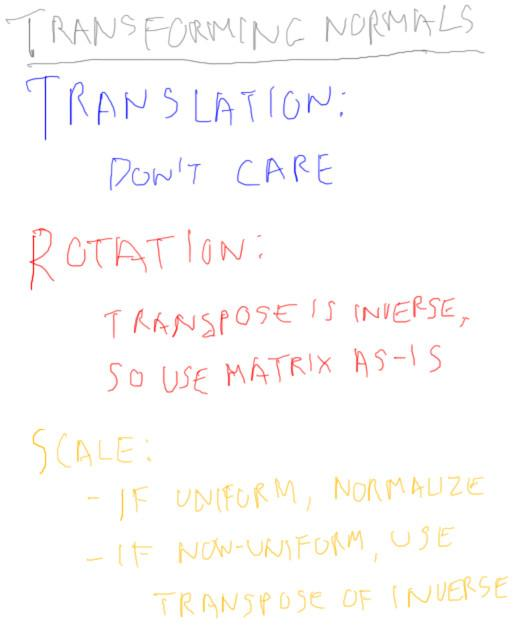 TRANSFORMING NORMALS
TRANSLATION:
DON'T CARE
ROTATION:
TRANSPOSE IS INVERSE,
SO USE MATRIX AS-IS
SCALE:
- IF UNIFORM, NORMALIZE
- IF NON-UNIFORM, USE
TRANSPOSE OF INVERSE